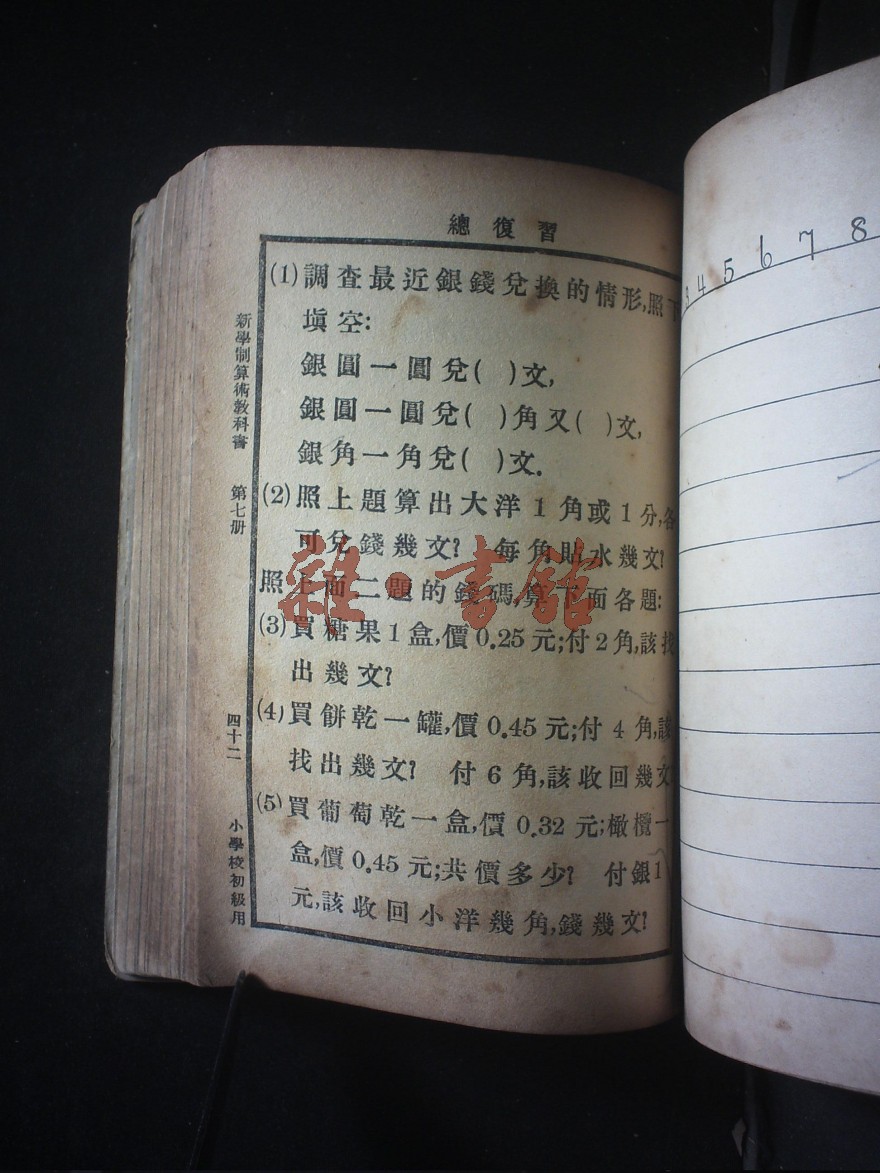 總復習
(1)調查最近銀錢兌換的情形,照下
塡空:
銀圓一圓兌( )文,
銀圓一圓兌( )角又( )文,
銀角一角兌( )文.
(2)照上題算出大洋1角或1分,各
可兌錢幾文? 每角貼水幾文?
照上面二題的錢碼,算下面各題:
(3)買糖果1盒,價0.25元;付2角,該找
出幾文?
(4)買餅乾一罐,價0.45元;付4角,該
找出幾文? 付6角,該收回幾文
(5)買葡萄乾一盒,價0.32元;橄欖一
盒,價0.45元;共價多少? 付銀1
元,該收回小洋幾角,錢幾文?
新學制算術教科書 第七册
四十二
小學校初級用
雜·書館
3 4 5 6 7 8